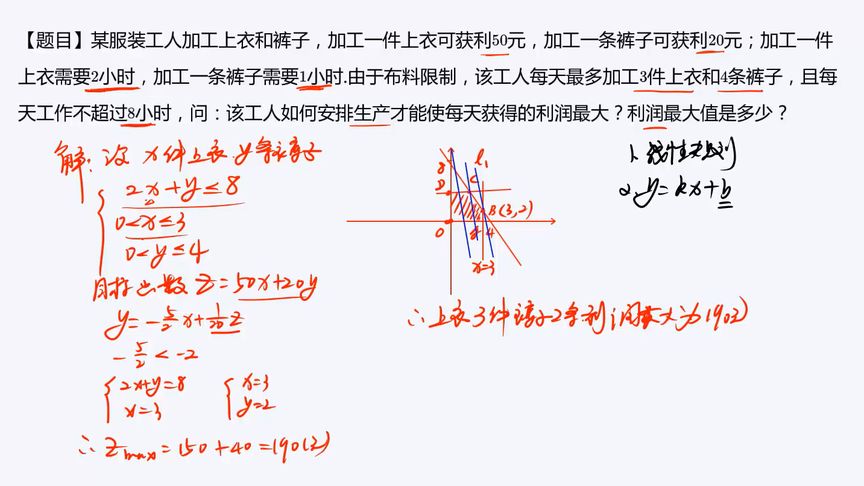 【题目】某服装工人加工上衣和裤子，加工一件上衣可获利50元，加工一条裤子可获利20元；加工一件
上衣需要2小时，加工一条裤子需要1小时.由于布料限制，该工人每天最多加工3件上衣和4条裤子，且每
天工作不超过8小时，问：该工人如何安排生产才能使每天获得的利润最大？利润最大值是多少？
解：设 x件上衣 y条裤子
2x+y≤8
0<x≤3
0<y≤4
目标函数 Z=50x+20y
y=-5/2x+1/20z
-5/2<-2
2x+y=8
x=3
x=3
y=2
∴Zmax=150+40=190(元)
8
l₁
D
C
B(3,2)
O
4
x=3
∴上衣3件裤子2条利润最大为190元
1、线性规划
2、y=kx+b